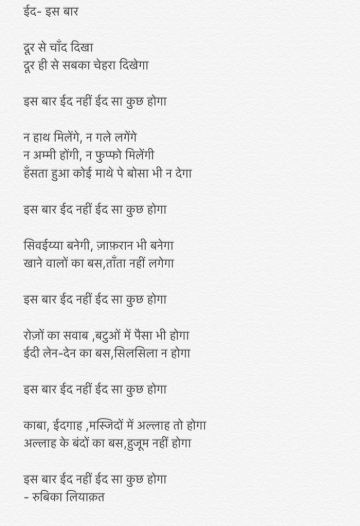 ईद- इस बार
दूर से चाँद दिखा
दूर ही से सबका चेहरा दिखेगा
इस बार ईद नहीं ईद सा कुछ होगा
न हाथ मिलेंगे, न गले लगेंगे
न अम्मी होंगी, न फुप्फो मिलेंगी
हँसता हुआ कोई माथे पे बोसा भी न देगा
इस बार ईद नहीं ईद सा कुछ होगा
सिवईय्या बनेगी, ज़ाफ़रान भी बनेगा
खाने वालों का बस,ताँता नहीं लगेगा
इस बार ईद नहीं ईद सा कुछ होगा
रोज़ों का सवाब ,बटुओं में पैसा भी होगा
ईदी लेन-देन का बस,सिलसिला न होगा
इस बार ईद नहीं ईद सा कुछ होगा
काबा, ईदगाह ,मस्जिदों में अल्लाह तो होगा
अल्लाह के बंदों का बस,हुजूम नहीं होगा
इस बार ईद नहीं ईद सा कुछ होगा
- रुबिका लियाक़त